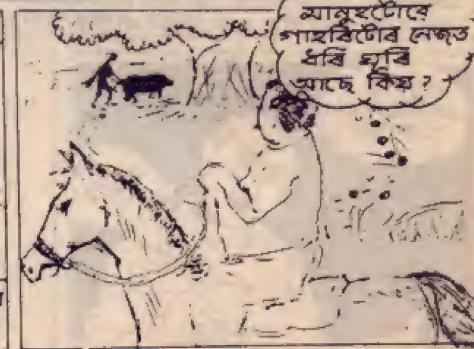 মানুহটোৱে
গাহৰিটোৰ নেজত
ধৰি ঘূৰি
আছে কিয় ?